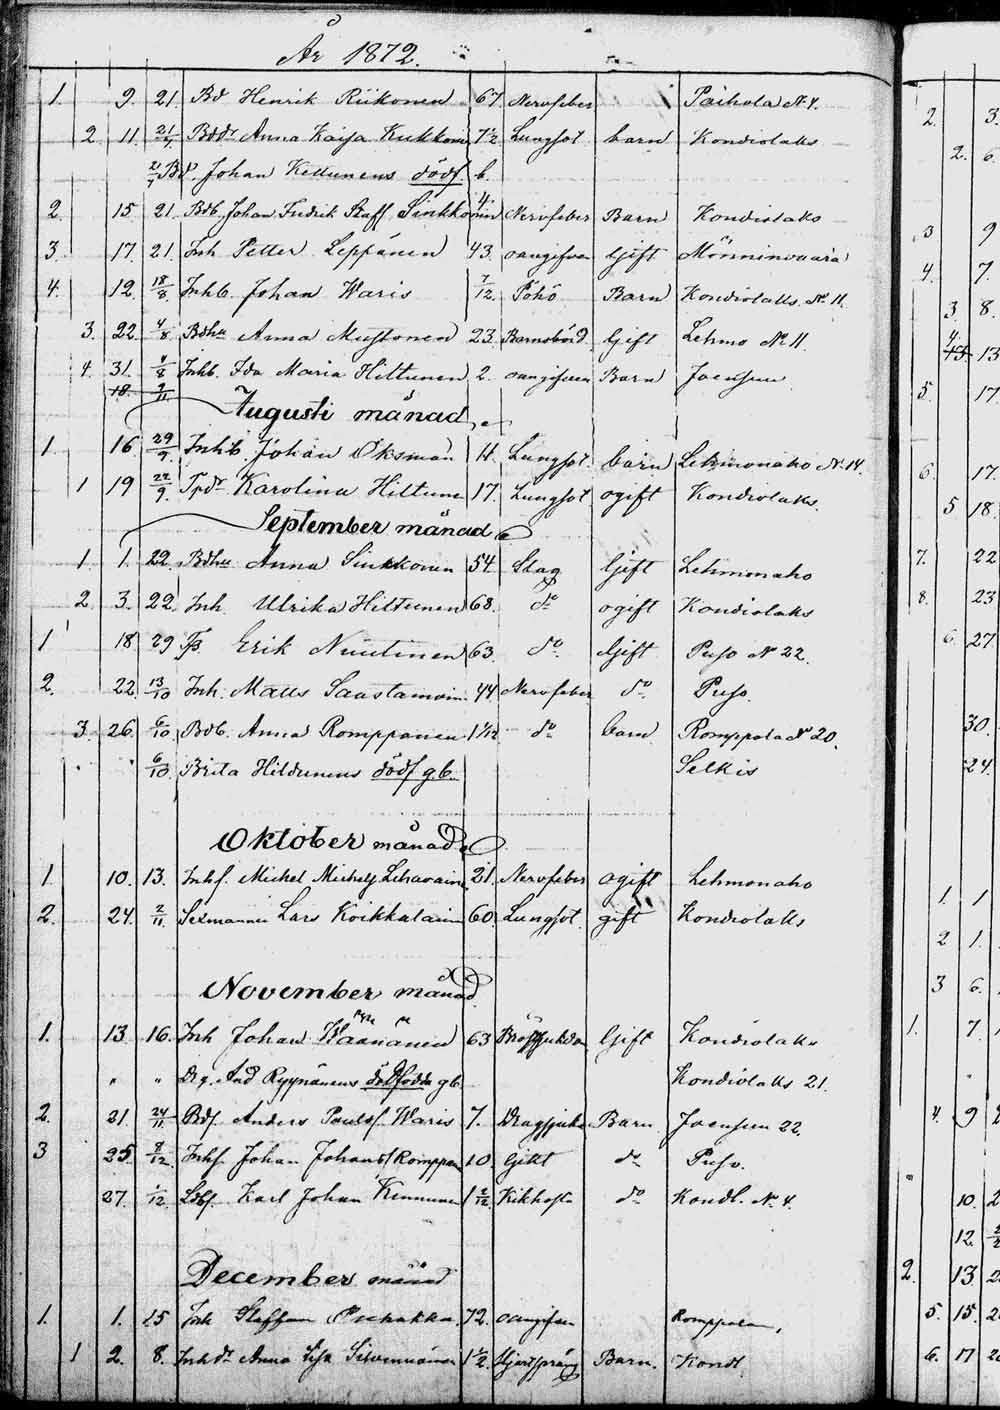 År 1872.
1. 9. 21. Bd Henrik Riikonen 67 Nervfeber Paihola N. 4.
2. 11. 21/7 Bddr Anna Kaisa Kukkonen 7½ Lungsot barn Kondiolaks
21/7 Bd. Johan Kettunens dödf. b.
2. 15. 21. Bdb. Johan Fredrik Staff. Sinkkonen 4. Nervfeber Barn Kondiolaks
3. 17. 21. Inh Petter Leppänen 43. oangifven Gift Mönninvaara
4. 12. 18/8. Inhb. Johan Waris 7/12. Barn Kondiolaks. N. 11.
3. 22. 4/8 Bdhu Anna Mustonen 23. Barnsbörd. Gift Lehmo N. 11.
4. 31. 4/8 Inhb. Ida Maria Hiltunen 2. oangifven Barn Joensuu.
18. 9/11
Augusti månad
1 16. 29/9. Inhb. Johan Oksman 11. Lungsot. barn Lehmonaho N. 14.
1 19 22/9. Karolina Hiltunen 17. Lungsot ogift Kondiolaks.
September månad
1 1. 22. Bdhu Anna Sinkkonen 54. Slag Gift Lehmonaho
2 3. 22. Inh Ulrika Hiltunen 68. do ogift Kondiolaks
1 18. 29 Erik Nuutinen 63. do Gift Puso N 22.
2. 22. 13/10 Inh. Matts Saastamoin. 44. Nervfeber do Puso.
3. 26. 6/10. Bdb. Anna Romppanen 1 1/12. do barn Romppala N 20.
6/10. Brita Hildunens dödf. g.b. Selkis
Oktober månad
1 10. 13. Inhs. Michel Michels. Lehavain. 21. Nervfeber ogift Lehmonaho
2. 24. 2/11. Sexmannen Lars Koikkalain 60. Lungsot gift Kondiolaks
November månad.
1. 13. 16. Inh Johan 63 Bröstsjukdom Gift Kondiolaks
" " Drg. And Ryynänens dödfödda g.b. Kondiolaks 21.
2. 21. 24/11. Bds. Anders Paulss. Waris 7. Dragsjuka Barn Joensuu 22.
3 25. 8/12. Inhs. Johan Johanss. Romppan 10. Gikt do Puso.
27. 1/12. Karl Johan Kinnunen 1 2/12. Kikhosta do Kondl. N. 4.
December månad
1. 1. 15 Inh Staffan Puhakka. 72. oangifven Romppala,
1 2. 8. Inhdr Anna Lisa 1½. Hjertsprång Barn. Kondl.
2. 3.
2. 6.
3 9
4. 7.
3 8.
4 13
5 17.
6. 17.
5 18.
7. 22
8. 23
6. 27
30.
24.
1. 1
2 1.
3 6.
1. 7.
4. 9
10. 2
12.
2. 13 2
5. 15. 2
6. 17